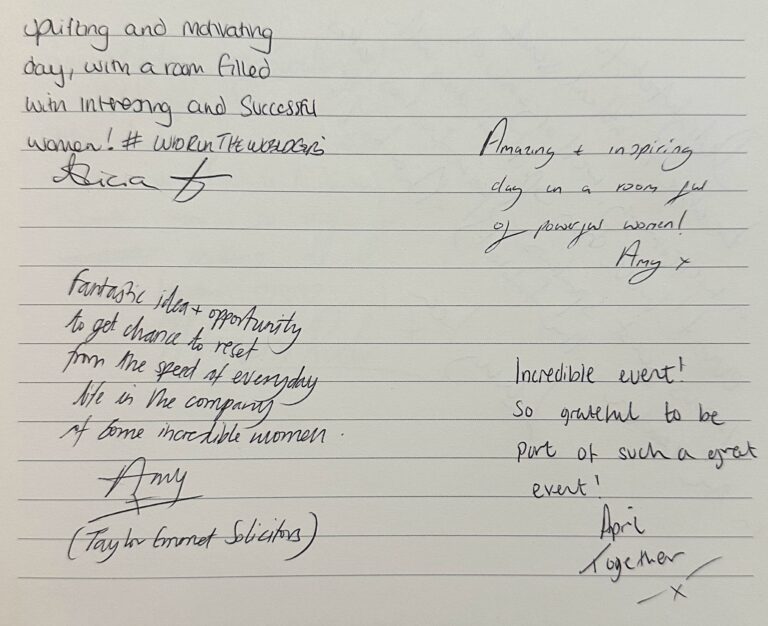 uplifting and motivating
day, with a room filled
with interesting and successful
women! #
Alicia
Amazing + inspiring
day in a room full
of powerful women!
Amy x
Fantastic idea + opportunity
to get chance to reset
from the speed of everyday
life in the company
of some incredible women.
Amy
(Taylor Emmet Solicitors)
Incredible event!
So grateful to be
part of such a great
event!
April
Together
x